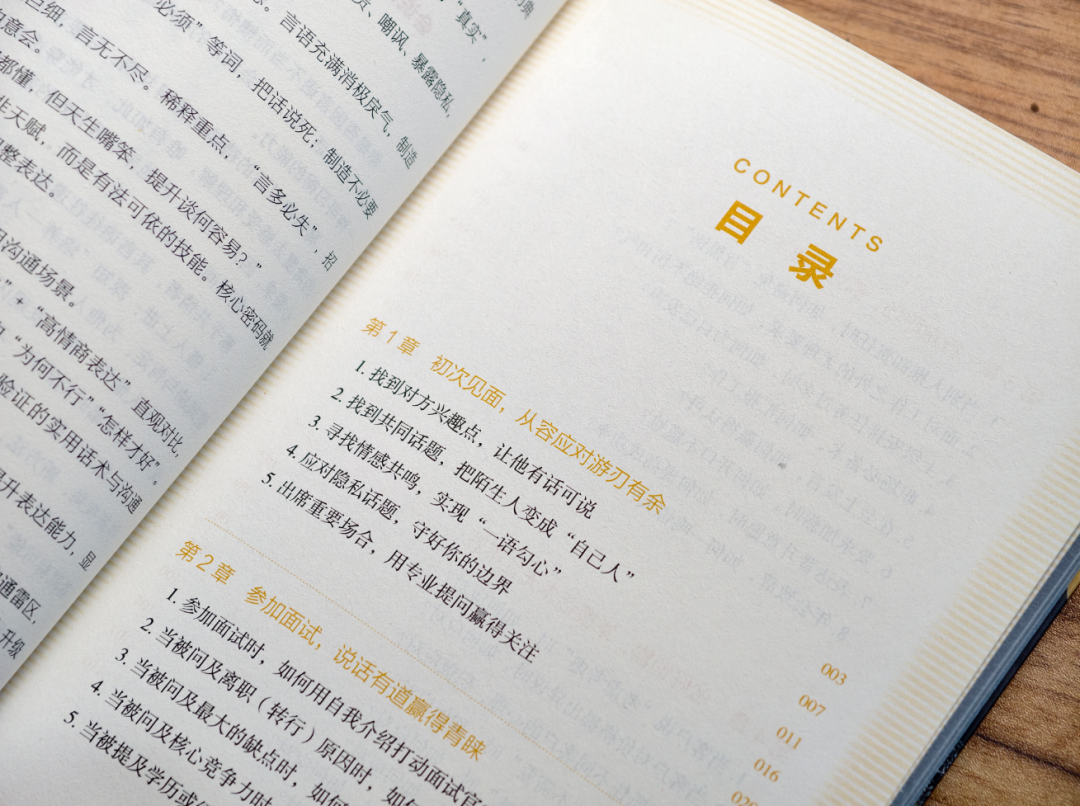 "真实"
嘲讽、暴露隐私,
言语充满消极戾气,制造
必须"等词,把话说死;制造不必要
巨细,言无不尽。稀释重点,"言多必失",招
意会。
都懂,但天生嘴笨,提升谈何容易?"
生天赋,而是有法可依的技能。核心密码就
整表达。
沟通场景。
"+"高情商表达"直观对比,
"为何不行""怎样才好"。
验证的实用话术与沟通
升表达能力,显
通雷区,
升级
CONTENTS
目录
第1章 初次见面,从容应对游刃有余
1. 找到对方兴趣点,让他有话可说
2. 找到共同话题,把陌生人变成"自己人"
3. 寻找情感共鸣,实现"一语勾心"
4. 应对隐私话题,守好你的边界
5. 出席重要场合,用专业提问赢得关注
003
007
011
016
第2章 参加面试,说话有道赢得青睐
1. 参加面试时,如何用自我介绍打动面试官
2. 当被问及离职(转行)原因时,如
3. 当被问及最大的缺点时,如何
4. 当被问及核心竞争力时
5. 当被提及学历或